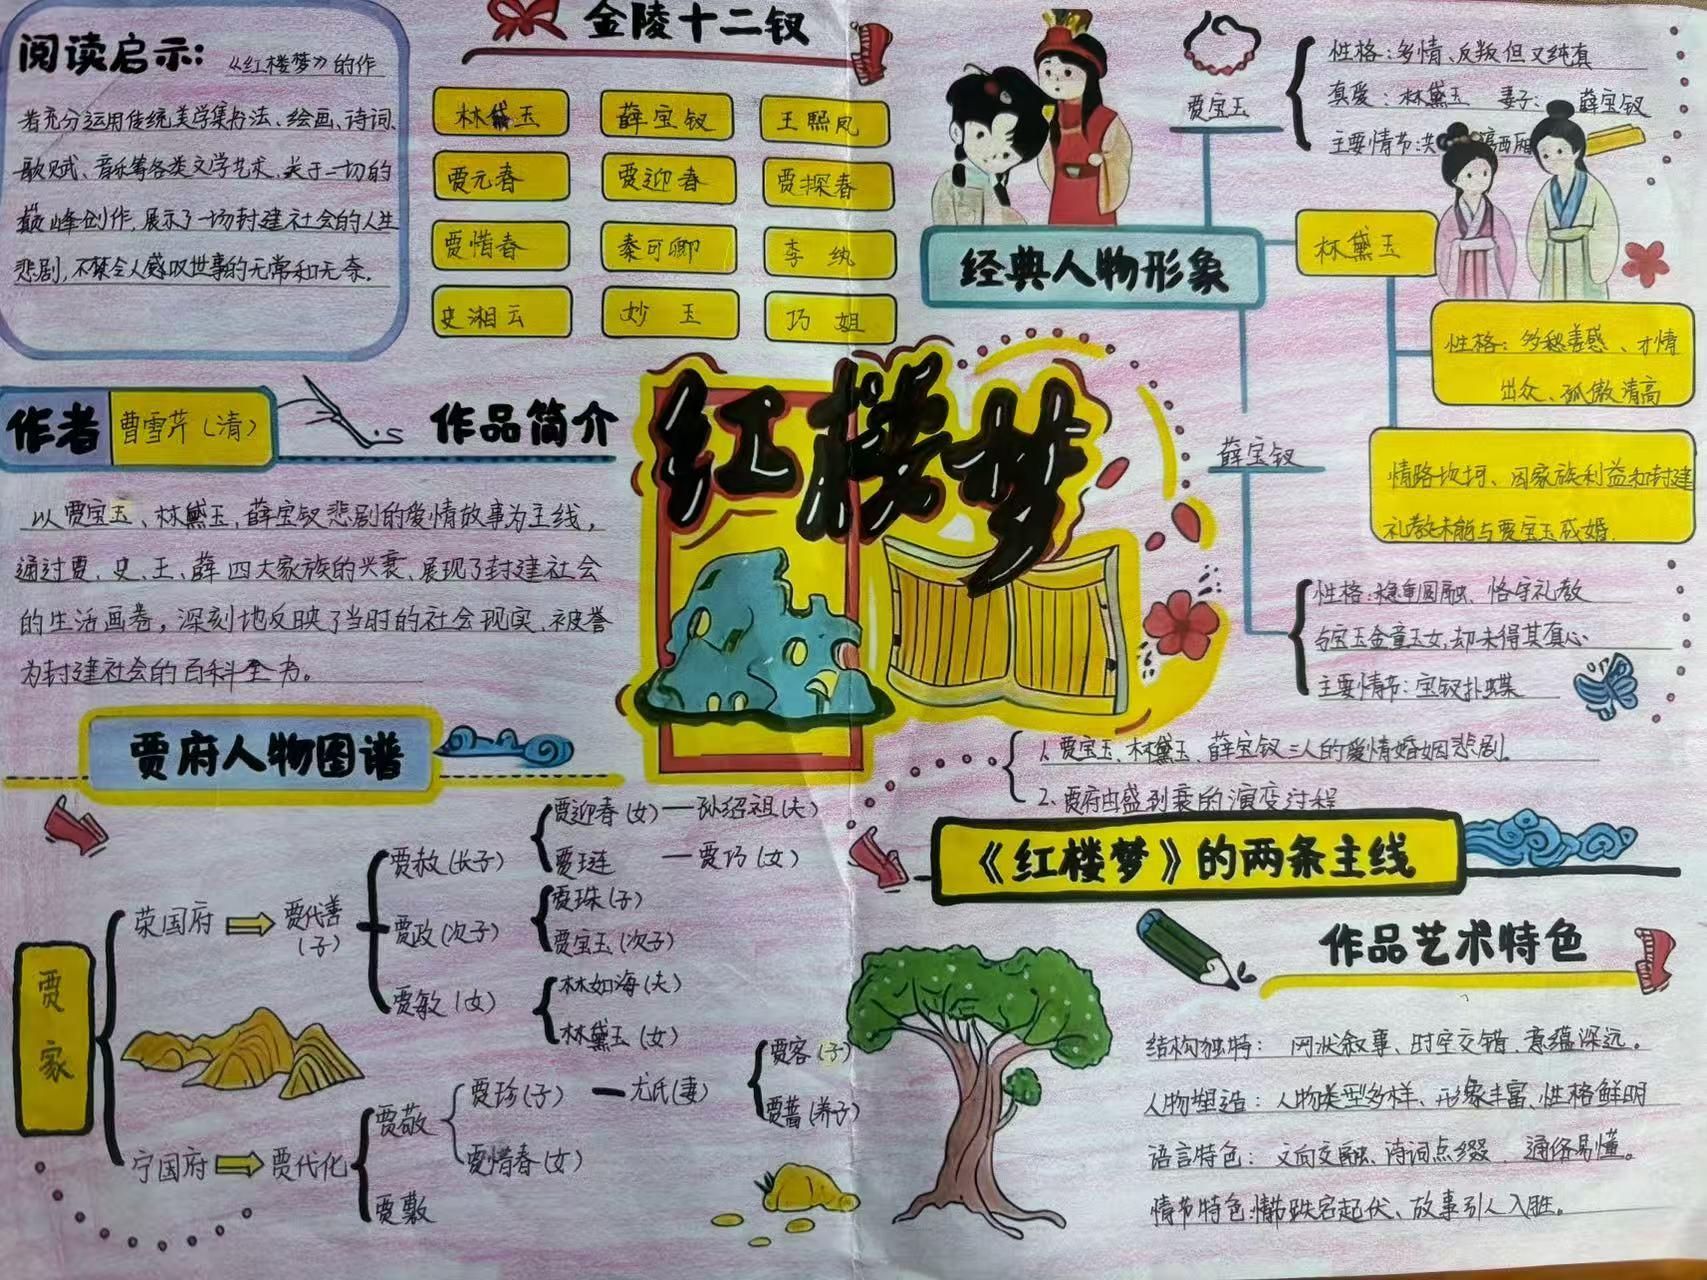 阅读启示:
《红楼梦》的作
者充分运用传统美学集书法、绘画、诗词、
歌赋、音乐等各类文学艺术,关于一切的
巅峰创作,展示了一场封建社会的人生
悲剧,不禁令人感叹世事的无常和无奈。
金陵十二钗
林黛玉 薛宝钗 王熙凤
贾元春 贾迎春 贾探春
贾惜春 秦可卿 李纨
史湘云 妙玉 巧姐
贾宝玉
性格:多情、反叛但又纯真
真爱:林黛玉 妻子: 薛宝钗
主要情节:共 西厢
经典人物形象
林黛玉
性格:多愁善感、才情
出众、孤傲清高
情路坎坷、因家族利益和封建
礼教未能与贾宝玉成婚.
薛宝钗
性格:稳重圆融、恪守礼教
与宝玉金童玉女,却未得其真心
主要情节:宝钗扑蝶
作者 曹雪芹(清)
作品简介
以贾宝玉、林黛玉,薛宝钗悲剧的爱情故事为主线,
通过贾、史、王、薛四大家族的兴衰、展现了封建社会
的生活画卷,深刻地反映了当时的社会现实、被誉
为封建社会的百科全书。
红楼梦
贾府人物图谱
贾家
荣国府 贾代善
(子)
贾赦(长子)
贾迎春(女)—孙绍祖(夫)
贾琏 —贾巧(女)
贾政(次子)
贾珠(子)
贾宝玉(次子)
贾敏(女)
林如海(夫)
林黛玉(女)
宁国府 贾代化
贾敬
贾珍(子) — 尤氏(妻)
贾容(子)
贾蔷(养子)
贾惜春(女)
贾敷
1.贾宝玉、林黛玉、薛宝钗三人的爱情婚姻悲剧。
2.贾府由盛到衰的演变过程
《红楼梦》的两条主线
作品艺术特色
结构独特: 网状叙事、时空交错、意蕴深远。
人物塑造:人物类型多样、形象丰富、性格鲜明
语言特色: 文白交融、诗词点缀、通俗易懂。
情节特色:情节跌宕起伏、故事引人入胜。